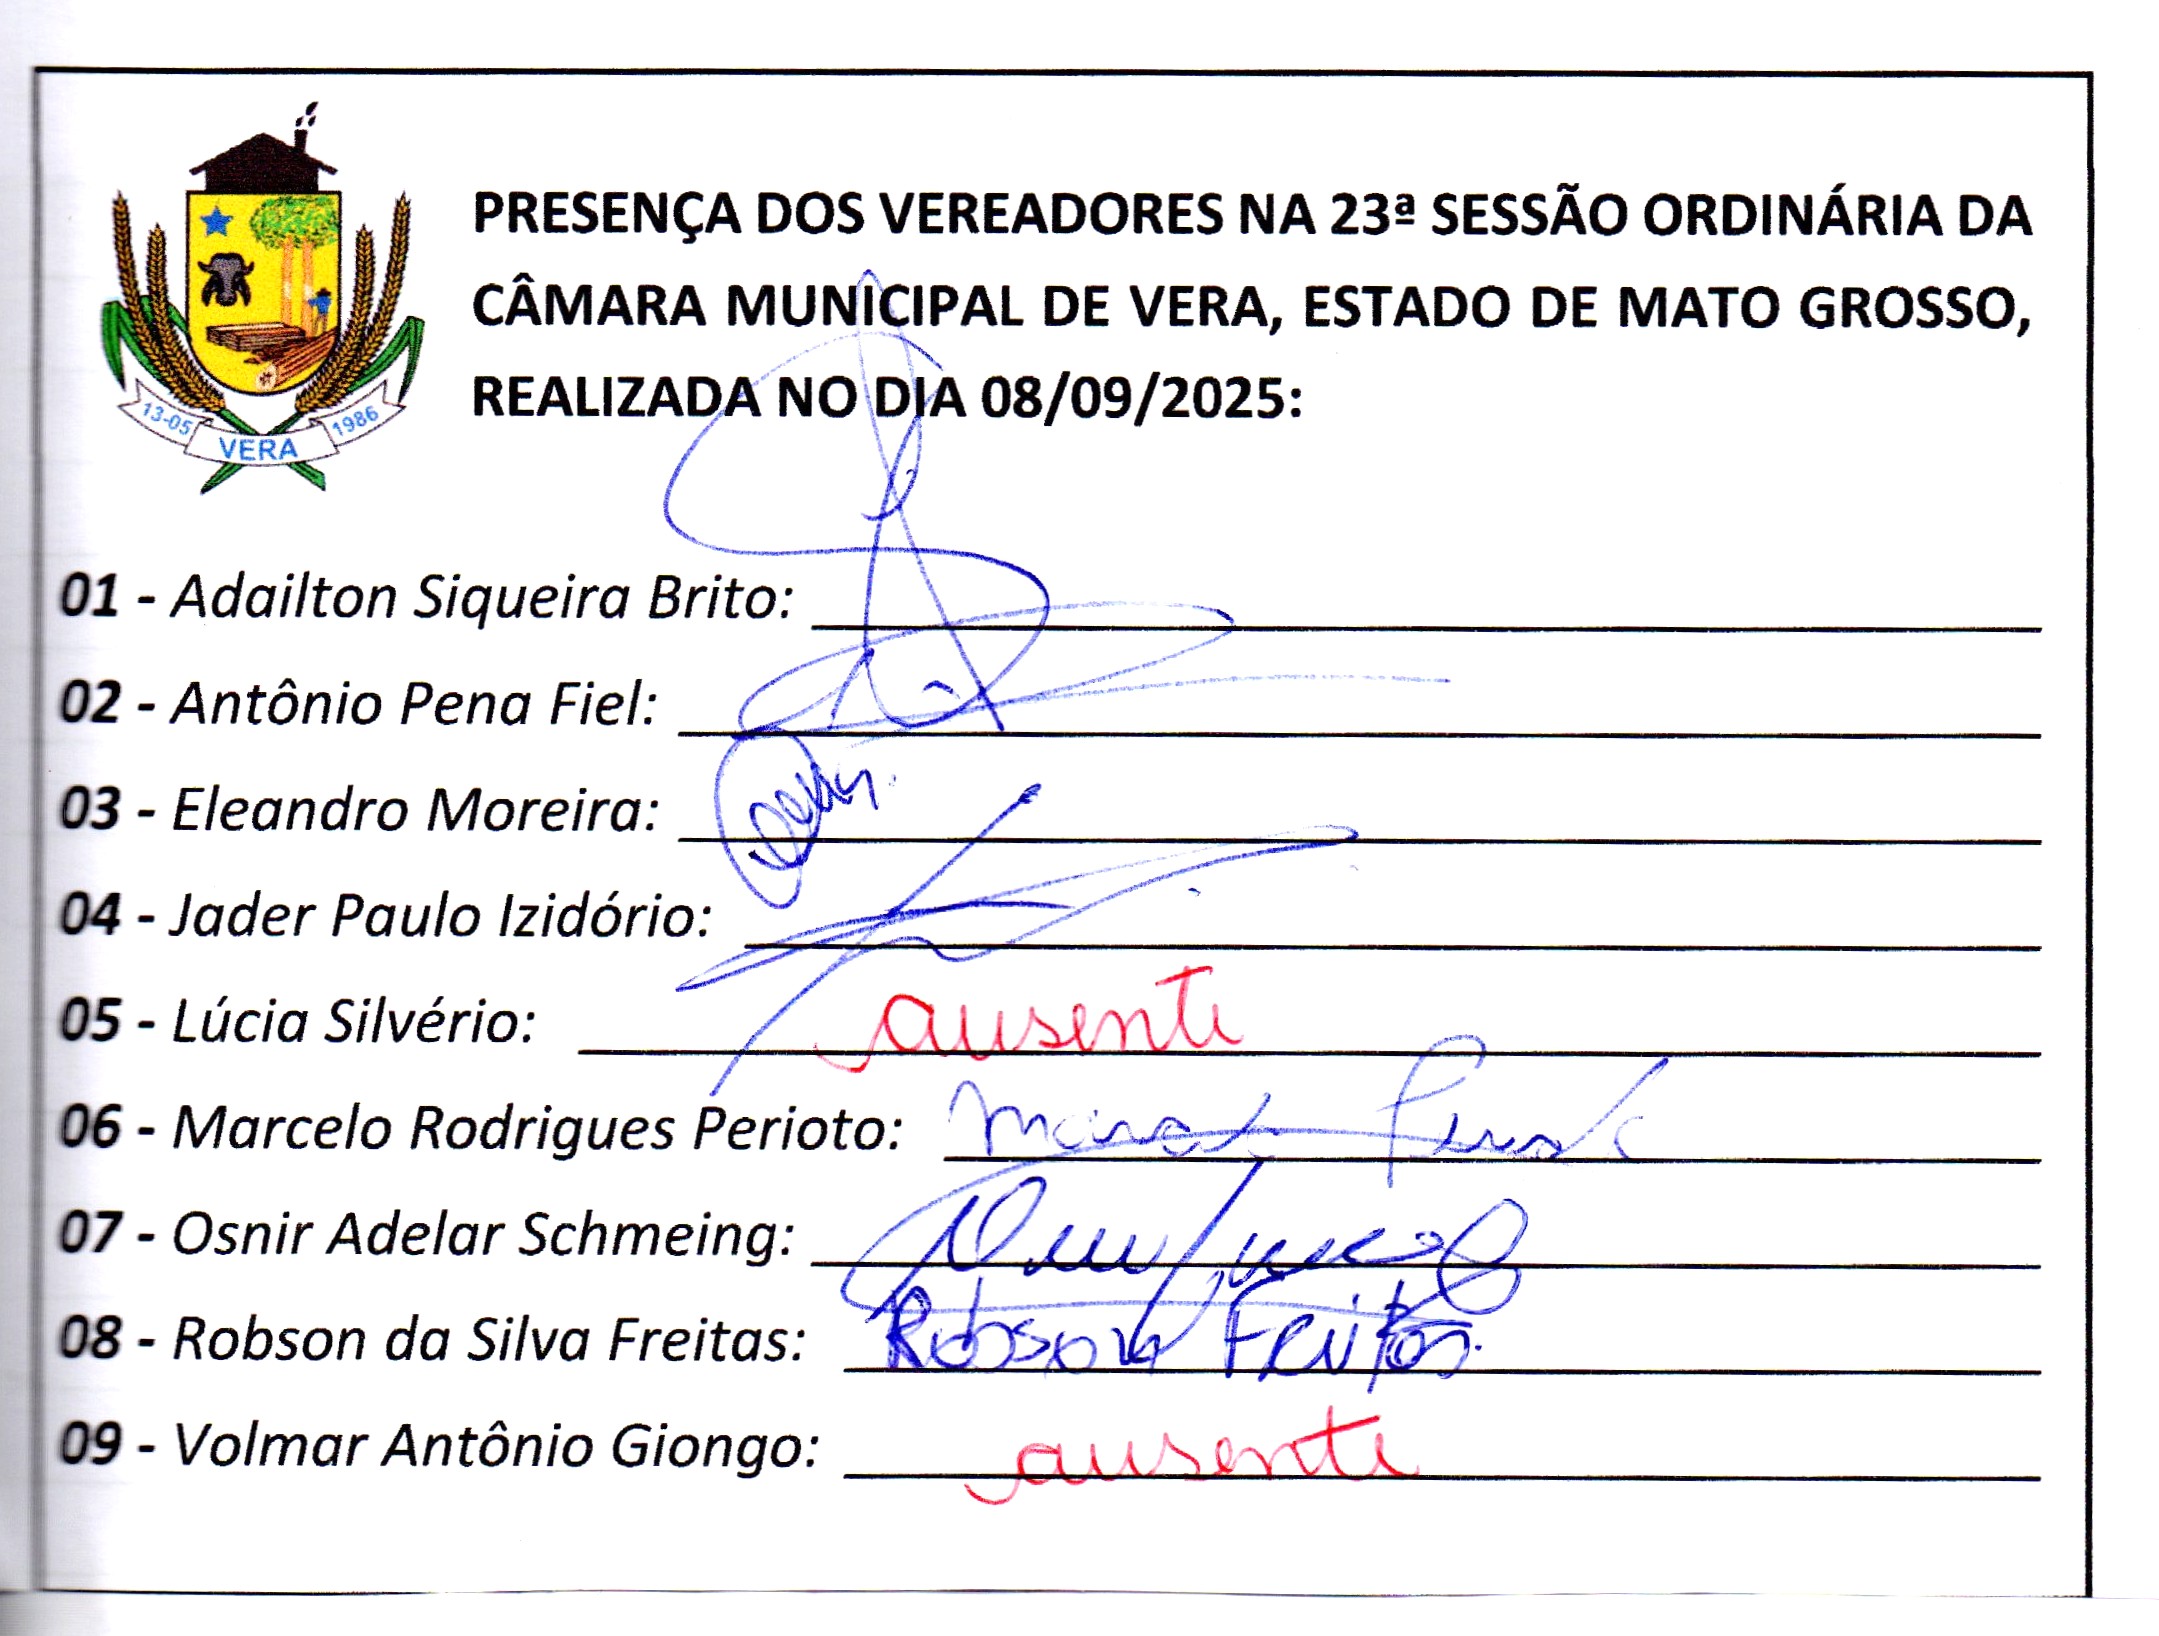 PRESENÇA DOS VEREADORES NA 23ª SESSÃO ORDINÁRIA DA
CÂMARA MUNICIPAL DE VERA, ESTADO DE MATO GROSSO,
REALIZADA NO DIA 08/09/2025:
13-05 VERA 1986
01 - Adailton Siqueira Brito:
02 - Antônio Pena Fiel:
03 - Eleandro Moreira:
04 - Jader Paulo Izidório:
05 - Lúcia Silvério: ausente
06 - Marcelo Rodrigues Perioto:
07 - Osnir Adelar Schmeing:
08 - Robson da Silva Freitas: Robson Freitas
09 - Volmar Antônio Giongo: ausente